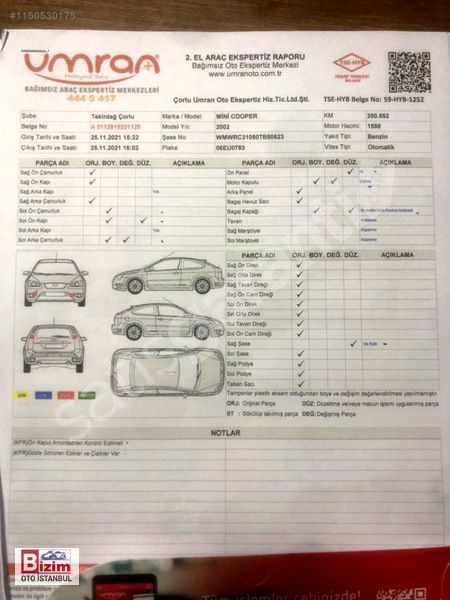 #1150530175
ümran+
Profesyonel Bakış
BAĞIMSIZ ARAÇ EKSPERTİZ MERKEZLERİ
444 5 417
2. EL ARAÇ EKSPERTİZ RAPORU
Bağımsız Oto Ekspertiz Merkezi
www.umranoto.com
TSE-HYB
HİZMET YETERLİLİĞİ BELGESİ
Çorlu Umran Oto Ekspertiz Hiz.Tic.Ltd.Şti.
TSE-HYB Belge No: 59-HYB-1252
Şube: Tekirdağ Çorlu Marka / Model: MİNİ COOPER KM 250.852
Belge No Model Yılı: 2002 Motor Hacmi: 1598
Giriş Tarihi ve Saati 25.11.2021 15:22 Şase No: WMWRC31050TB80623 Yakıt Tipi: Benzin
Çıkış Tarihi ve Saati 25.11.2021 16:02 Plaka: 06EU0783 Vites Tipi: Otomatik
PARÇA ADI ORJ. BOY. DEĞ. DÜZ. AÇIKLAMA PARÇA ADI ORJ. BOY. DEĞ. DÜZ. AÇIKLAMA
Sağ Ön Çamurluk Ön Panel
Sağ Ön Kapı Motor Kaputu
Sağ Arka Kapı Arka Panel
Sağ Arka Çamurluk Bagaj Havuz Sacı
Sol Ön Çamurluk Bagaj Kapağı
Sol Ön Kapı Tavan
Sol Arka Kapı Sağ Marşbiyel
Sol Arka Çamurluk Sol Marşbiyel
PARÇA ADI ORJ. BOY. DEĞ. DÜZ. AÇIKLAMA
Sağ Ön Direk
Sağ Orta Direk
Sağ Tavan Direği
Sağ Ön Cam Direği
Sol Ön Direk
Sol Orta Direk
Sol Tavan Direği
Sol Ön Cam Direği
Sağ Şase
Sol Şase
Sağ Podye
Sol Podye
Taban Sacı
Tamponlar plastik aksam olduğundan boya ve değişim değerlendirilmesi yapılmamıştır
ORJ: Orijinal Parça DÜZ: Düzeltme ve/veya macun işlemi uygulanmış parça
ST : Sökülüp takılmış parça DEĞ: Değişmiş Parça
NOTLAR
(KPR)Ön Kaput Amortisörleri Kontrol Edilmeli -
(KPR)Gözle Görünen Ezikler ve Çizikler Var -
Bizim
OTO İSTANBUL